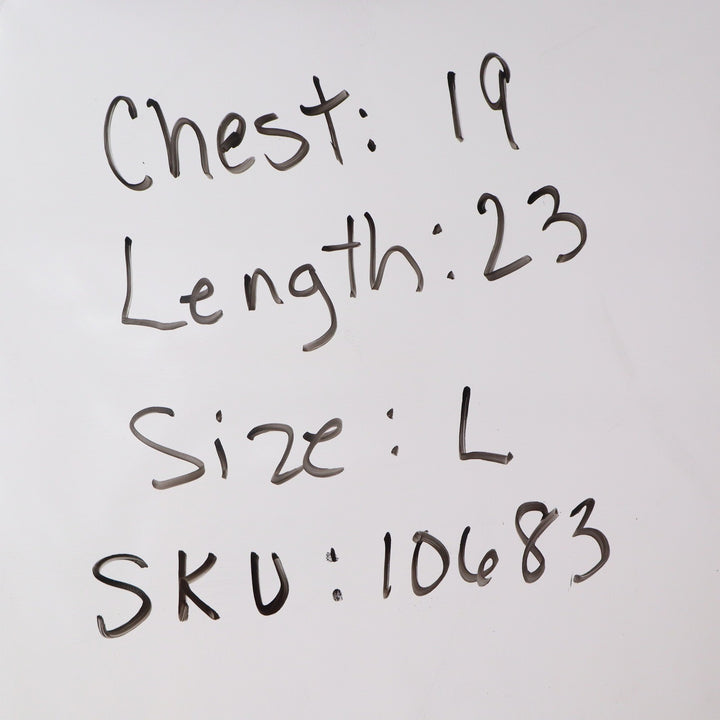 Chest: 19
Length: 23
Size: L
SKU: 10683